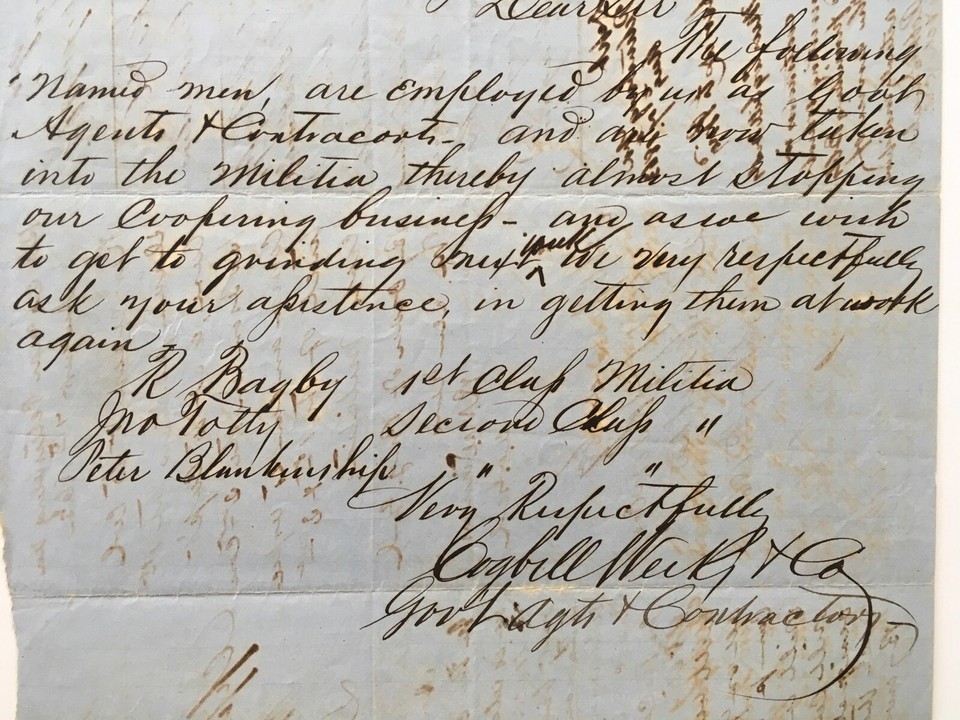 Dear Sir
The following
named men, are employed by us as Gov't
Agents & Contracorts - and are now taken
into the Militia thereby almost stopping
our Coopering business - and as we wish
to get to grinding next week We very respectfully
ask your assistence, in getting them at work
again
R Bagby 1st Class Militia
Jno Totty Second Class "
Peter Blankinship " "
Very Respectfully
Cogbill & Co
Gov't Agts & Contractors